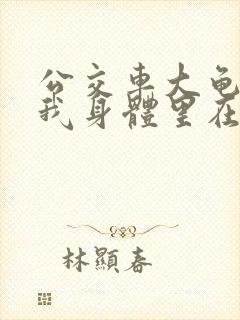 公交车大龟
我身體里在
林顯春